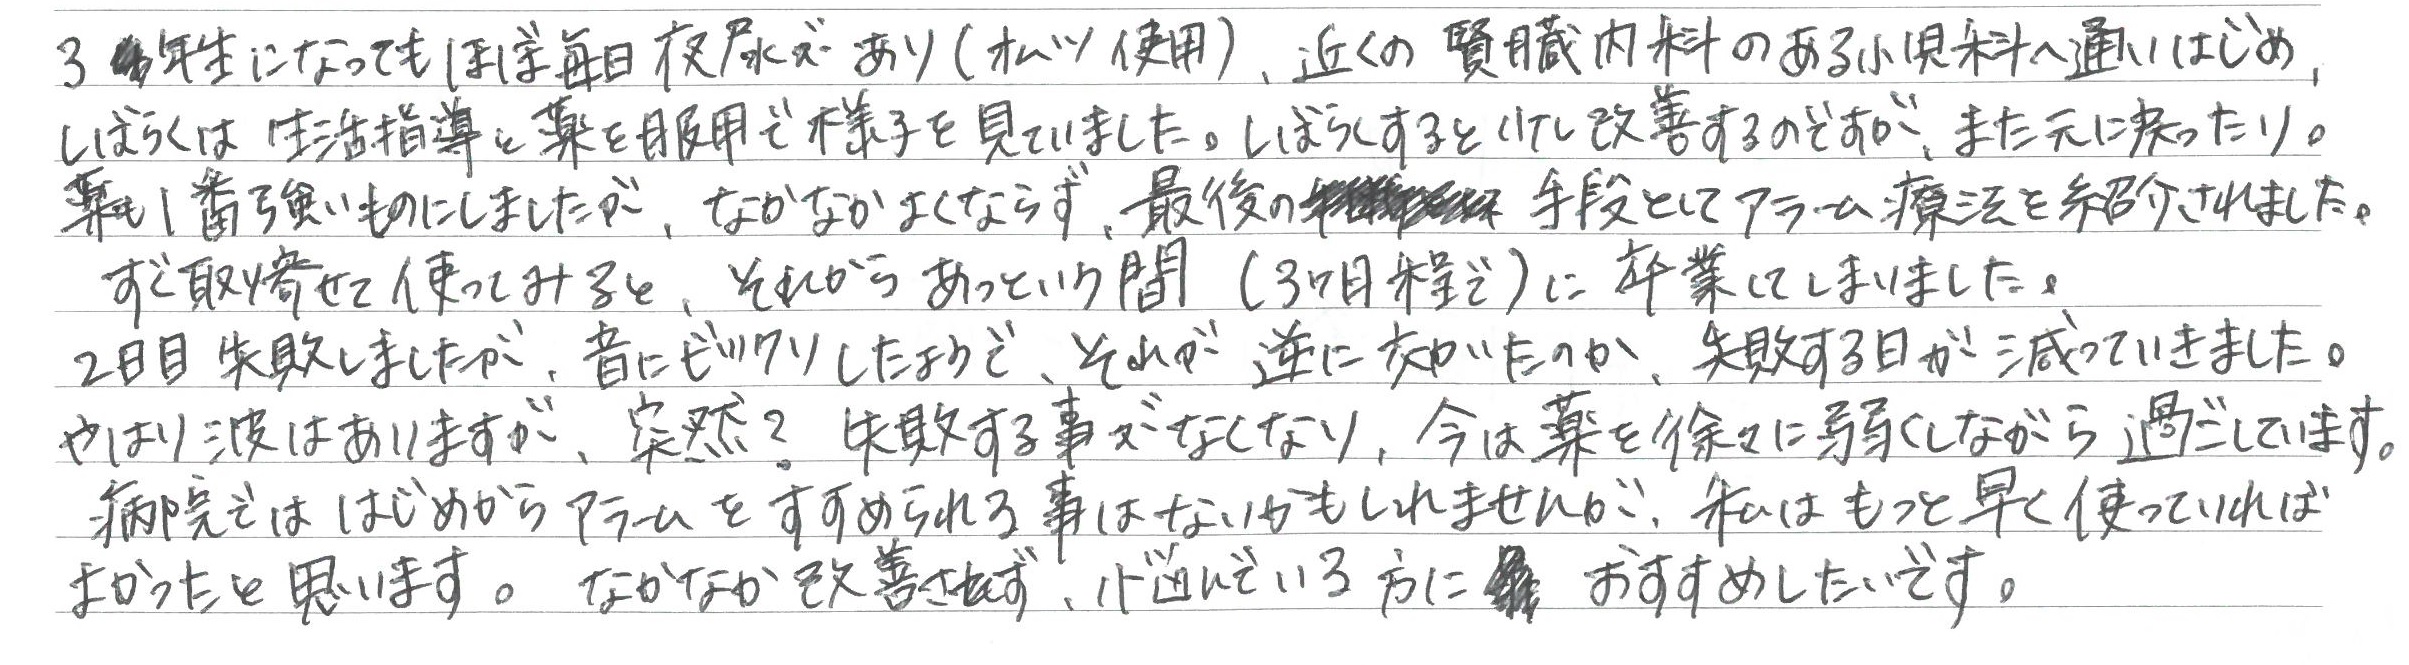 3年生になってもほぼ毎日夜尿があり(オムツ使用)、近くの腎臓内科のある小児科へ通いはじめ、
しばらくは生活指導と薬を服用で様子を見ていました。しばらくすると少し改善するのですが、また元に戻ったり。
薬も1番強いものにしましたが、なかなかよくならず、最後の手段としてアラーム療法を紹介されました。
すぐ取り寄せて使ってみると、それからあっという間(3ヶ月程で)に卒業してしまいました。
2日目失敗しましたが、音にビックリしたようで、それが逆に効いたのか、失敗する日が減っていきました。
やはり波はありますが、突然?失敗する事がなくなり、今は薬を徐々に弱くしながら過ごしています。
病院でははじめからアラームをすすめられる事はないかもしれませんが、私はもっと早く使っていれば
よかったと思います。なかなか改善されず、悩んでいる方におすすめしたいです。